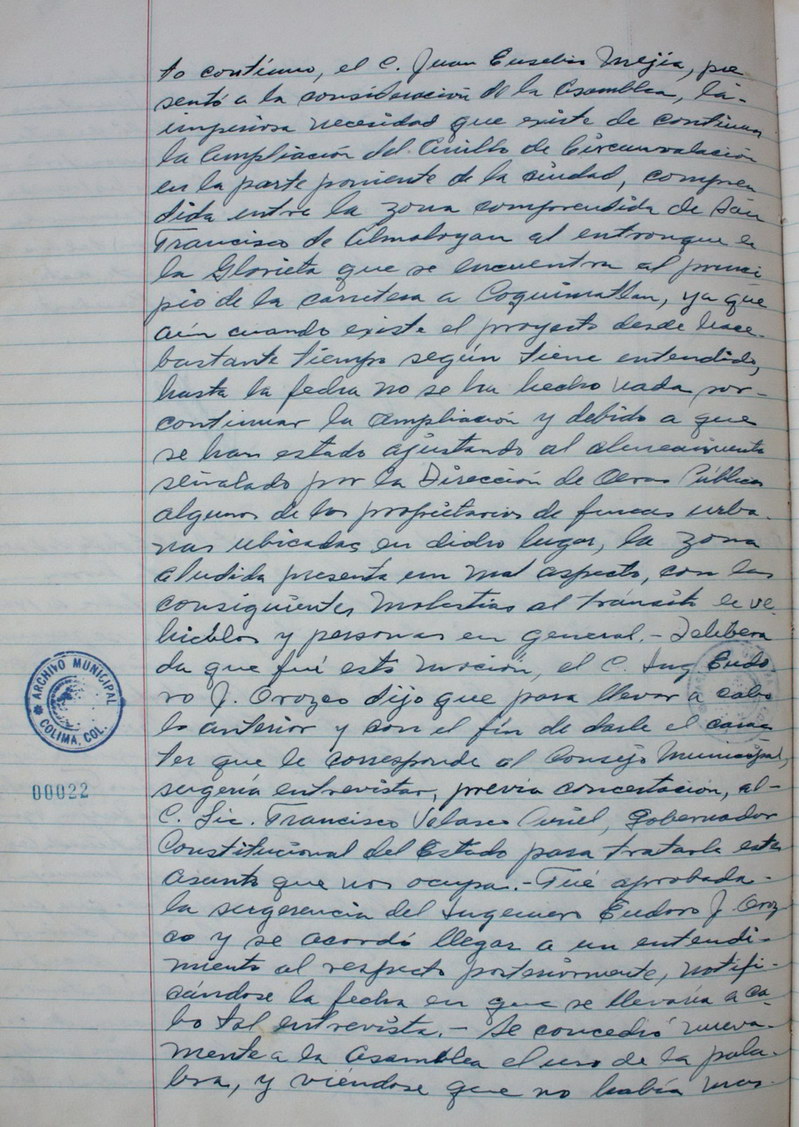 to contínuo, el C. Juan Eusebio Mejía, pre
sentó a la consideración de la Asamblea, la-
imperiosa necesidad que existe de continuar
la Ampliación del Anillo de Circunvalación
en la parte poniente de la ciudad, compren
dida entre la zona comprendida de San
Francisco de Almoloyan al entronque de
la Glorieta que se encuentra al princi
pio de la carretera a Coquimatlan, ya que
aún cuando existe el proyecto desde hace-
bastante tiempo según tiene entendido,
hasta la fecha no se ha hecho nada por-
continuar la ampliación y debido a que
se han estado ajustando al alineamiento
señalado por la Dirección de Obras Públicas
algunos de los propietarios de fincas urba-
nas ubicadas en dicho lugar, la zona
aludida presenta un mal aspecto, con las
consiguientes molestias al tránsito de ve-
hículos y personas en general.- Delibera
da que fué esta moción, el C. Ing Eudo
ro J. Orozco dijo que para llevar a cabo
lo anterior y con el fin de darle el carac-
ter que le corresponde al Consejo Municipal,
sugería entrevistar, previa concertación, al-
C. Lic. Francisco Velasco Curiel, Gobernador
Constitucional del Estado para tratarle este
asunto que nos ocupa.- Fué aprobada-
la sugerencia del Ingeniero Eudoro J. Oroz
co y se acordó llegar a un entendi-
miento al respecto posteriormente, notifi-
cándose la fecha en que se llevaría a ca-
bo tal entrevista.- Se concedió nueva-
mente a la Asamblea el uso de la pala-
bra, y viéndose que no había mas-
ARCHIVO MUNICIPAL
COLIMA, COL.
00022